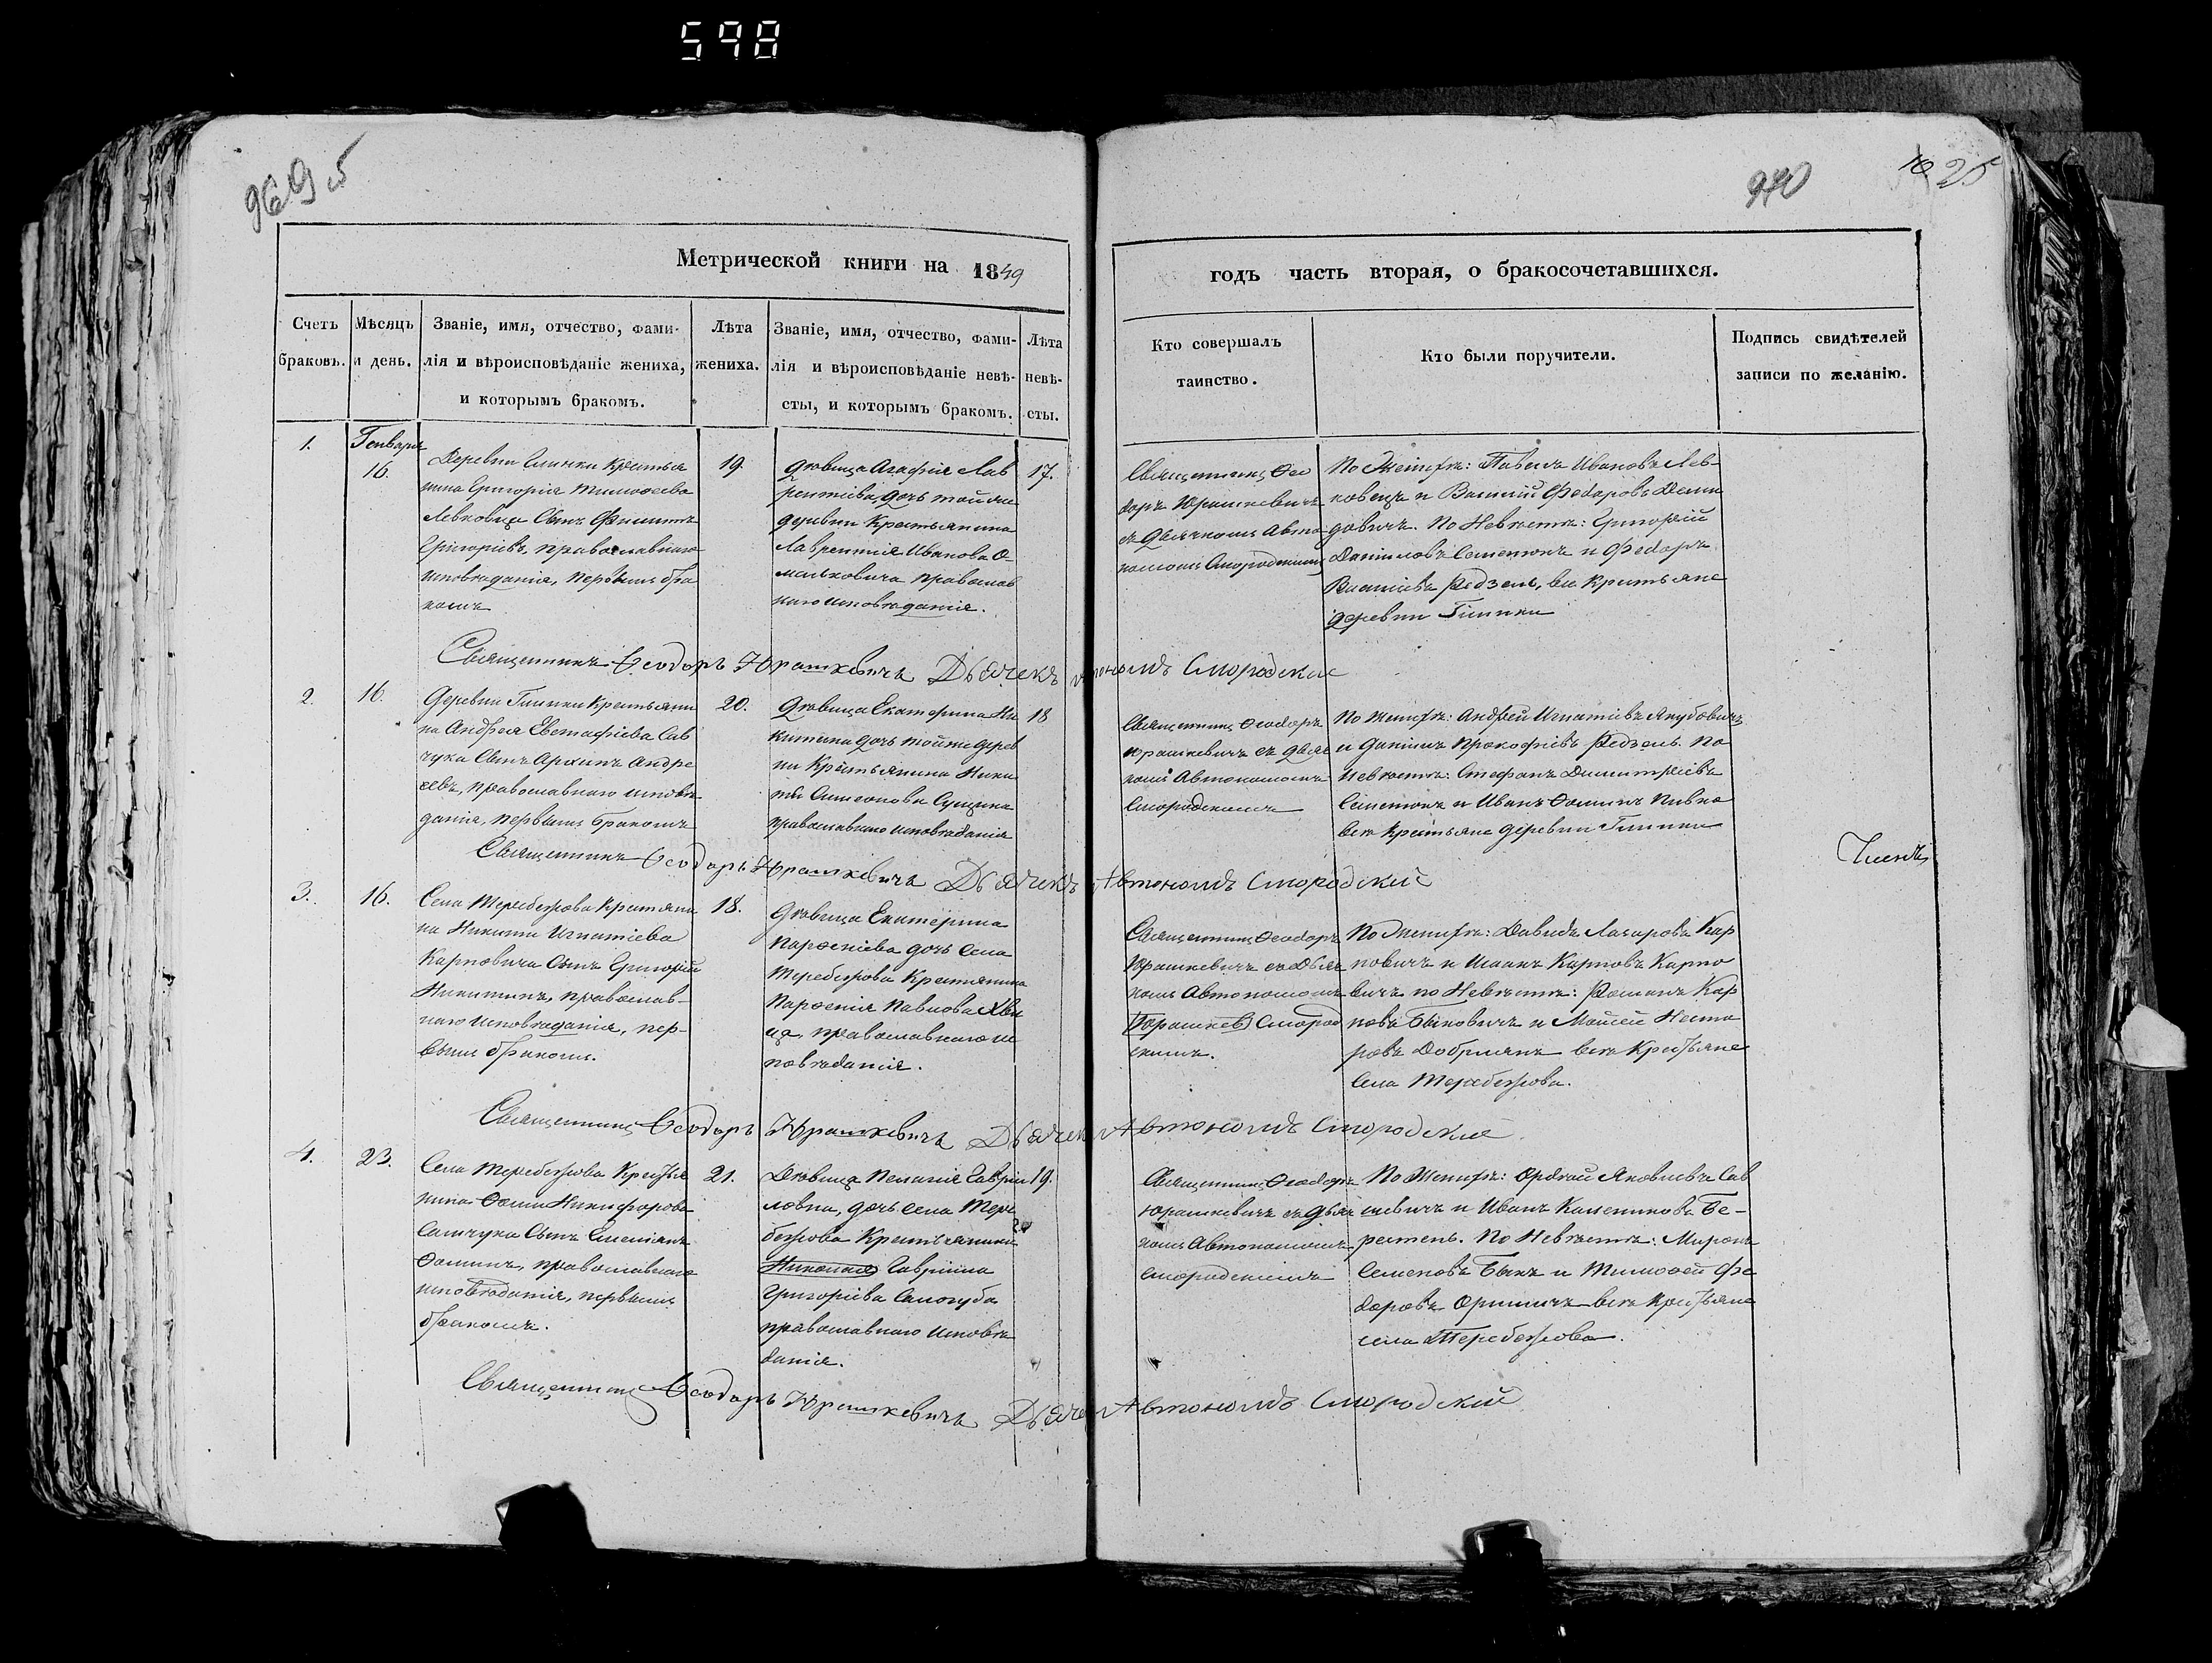 598
969 5
940
10 25
Метрической книги на 1849
годъ часть вторая, о бракосочетавшихся.
Счетъ браковъ.
Мѣсяцъ и день.
Званіе, имя, отчество, фами-
лія и вѣроисповѣданіе жениха,
и которымъ бракомъ.
Лѣта
жениха.
Званіе, имя, отчество, фами-
лія и вѣроисповѣданіе невѣ-
сты, и которымъ бракомъ.
Лѣта
невѣ-
сты.
Кто совершалъ
таинство.
Кто были поручители.
Подпись свидѣтелей
записи по желанію.
1.
Генваря
16.
Деревни Глинки Крестья
нина Григорія Тимоѳеева
Левковца Сынъ Филиппъ
Григоріевъ, православнаго
исповѣданія, первымъ бра
комъ
19.
Дѣвица Агафія Лав
рентіева дочь той же
деревни Крестьянина
Лаврентія Иванова О-
мельковича православ
наго исповѣданія.
17.
Священникъ Ѳео
доръ Юрашкевичъ
съ Дьячкомъ Авто
номомъ Смородскимъ
По Женихѣ: Павелъ Ивановъ Лев-
ковецъ и Василій Федоровъ Деми
довичъ. По Невѣстѣ: Григорій
Даниловъ Семенюкъ и Федоръ
Васильевъ Редзель, всѣ Крестьяне
деревни Глинки
Священникъ Ѳеодоръ Юрашкевичъ Дьячекъ Автономъ Смородскій
2.
16.
Деревни Глинки Крестьяни
на Андрея Евстафіева Сав
чука Сынъ Архипъ Андре
евъ, православнаго исповѣ
данія, первымъ бракомъ
20.
Дѣвица Екатерина Ни
китина дочь тойже дерев
ни Крестьянина Ники
ты Симеонова Сущика
православнаго исповѣданія
18
Священникъ Ѳеодоръ
Юрашкевичъ съ дьяч
комъ Автономомъ
Смородскимъ
По Женихѣ: Андрей Игнатіевъ Якубовичъ
и Даніилъ Прокофіевъ Редзель. По
Невѣстѣ: Стефанъ Димитріевъ
Семенюкъ и Иванъ Ѳоминъ Пивко
всѣ Крестьяне деревни Глинки
Священникъ Ѳеодоръ Юрашкевичъ Дьячекъ Автономъ Смородскій
3.
16.
Села Теребежова Крестьяни
на Никиты Игнатіева
Карповича Сынъ Григорій
Никитинъ, православ-
наго исповѣданія, пер-
вымъ бракомъ.
18.
Дѣвица Екатерина
Парѳеніева дочь Села
Теребежова Крестьянина
Парѳенія Павлова
православнаго ис
повѣданія.
Священникъ Ѳеодоръ
Юрашкевичъ съ Дьяч
комъ Автономомъ
(Юрашкев) Смород
скимъ.
По Женихѣ: Давидъ Лазаровъ Кар
повичъ и Исаакъ Карповъ Карпо
вичъ по Невѣстѣ: Романъ Кар
повъ Быковичъ и Моисей Несто
ровъ Добриянъ всѣ Крестьяне
Села Теребежова.
Священникъ Ѳеодоръ Юрашкевичъ Дьячекъ Автономъ Смородскій
4.
23.
Села Теребежова Крестья
нина Ѳомы Никифорова
Самчука Сынъ Емеліянъ
Ѳоминъ, православнаго
исповѣданія, первымъ
бракомъ.
21.
Дѣвица Пелагія Гаври
ловна, дочь села Тере
бежова Крестьянина
Гавріила
Григорієва Самогуба
православнаго исповѣ
данія.
19.
Священникъ Ѳеодоръ
Юрашкевичъ съ дьяч
комъ Автономомъ
Смородскимъ
По Женихѣ: Яковлевъ Сав
и Иванъ Калениковъ Бе-
регтень. По Невѣстѣ: Миронъ
Семеновъ Быкъ и Тимоѳей Фе
доровъ всѣ Крестьяне
села Теребежова.
Священникъ Ѳеодоръ Юрашкевичъ Дьячекъ Автономъ Смородскій